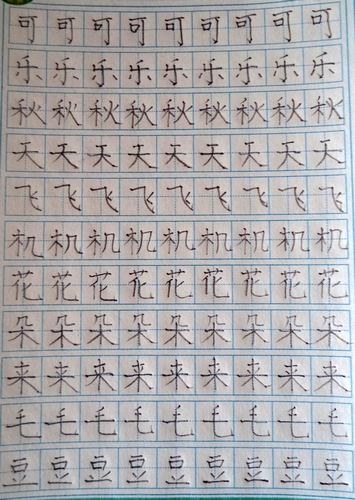 可可可可可可可可可
乐乐乐乐乐乐乐乐乐
秋秋秋秋秋秋秋秋秋
天天天天天天天天天
飞飞飞飞飞飞飞飞飞
机机机机机机机机机
花花花花花花花花花
朵朵朵朵朵朵朵朵朵
来来来来来来来来来
毛毛毛毛毛毛毛毛毛
豆豆豆豆豆豆豆豆豆